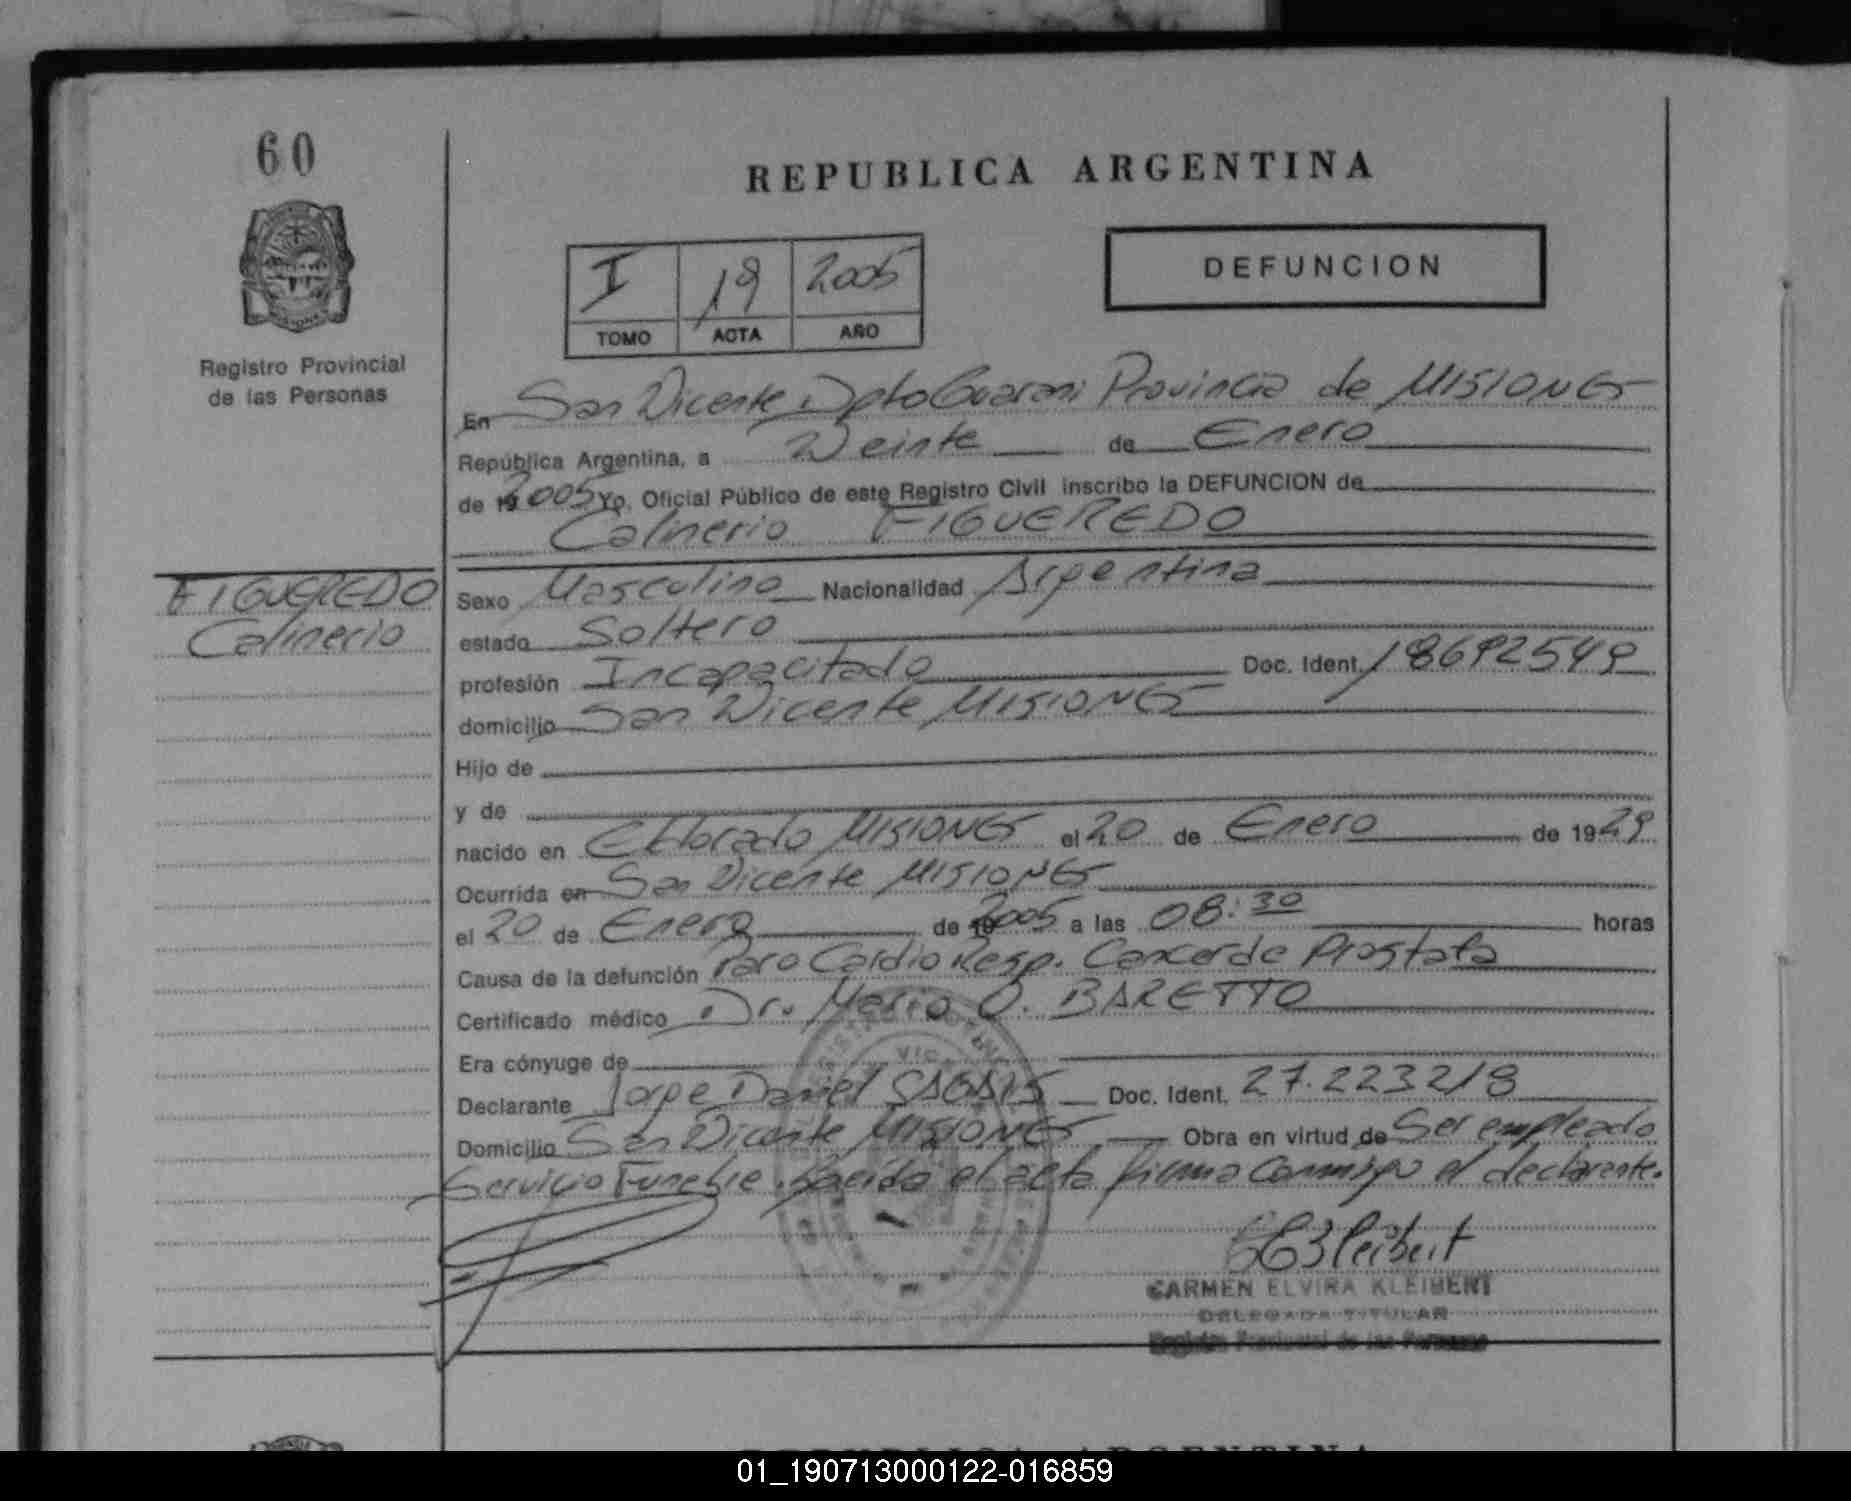 60
REPUBLICA ARGENTINA
I 19 2005
TOMO ACTA AÑO
DEFUNCION
Registro Provincial
de las Personas
En San Vicente Dpto Guarani Provincia de MISIONES
República Argentina, a Veinte de Enero
de 19 2005 Yo, Oficial Público de este Registro Civil inscribo la DEFUNCION de
Calinerio FIGUEREDO
FIGUEREDO
Calinerio
Sexo Masculino Nacionalidad Argentina
estado Soltero
profesión Incapacitado Doc. Ident. 18692549
domicilio San Vicente MISIONES
Hijo de
y de
nacido en Eldorado MISIONES el 20 de Enero de 1929
Ocurrida en San Vicente MISIONES
el 20 de Enero de 19 2005 a las 08:30 horas
Causa de la defunción Paro Cardio Resp. Cancer de Prostata
Certificado médico Dr. Mario O. BARETTO
Era cónyuge de
Declarante Jorge Daniel Doc. Ident. 27.223218
Domicilio San Vicente MISIONES Obra en virtud de Ser empleado
Servicio Funebre. el acta firma conmigo el declarante.
CARMEN ELVIRA KLEIBERT
DELEGADA TITULAR
Registro Provincial de las Personas
REPUBLICA ARGENTINA
01_190713000122-016859